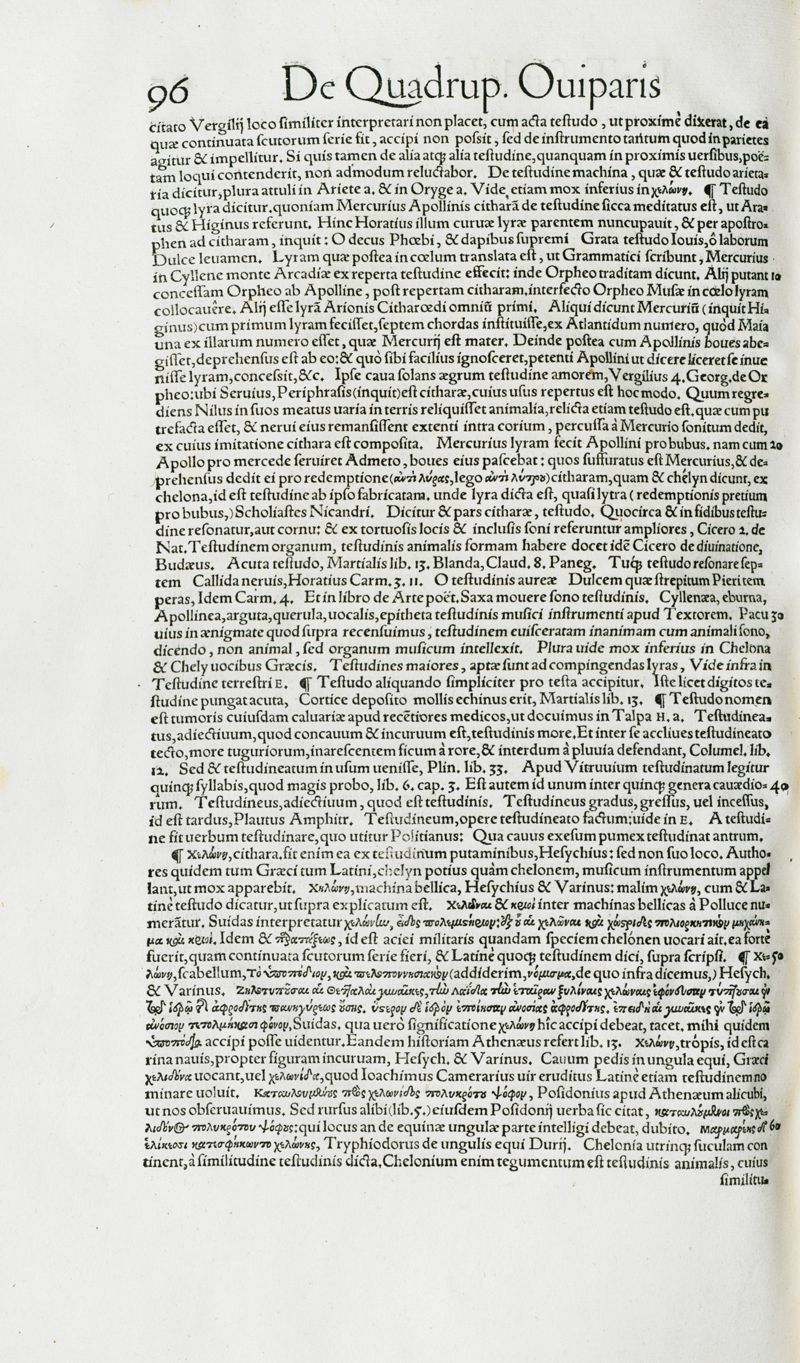 96 De Quadrup. Ouiparis
citato Vergilij loco ſimiliter interpretari non placet, cum acta teſtudo, ut proximè dixerat, de ea
quæ continuata ſcutorum ſerie fit, accipi non poſsit, ſed de inſtrumento tantum quod in parietes
agitur & impellitur. Si quis tamen de alia atq; alia teſtudine, quanquam in proximis uerſibus, poë-
tam loqui contenderit, non admodum reluctabor. De teſtudine machina, quæ & teſtudo arieta-
ria dicitur, plura attuli in Ariete a. & in Oryge a. Vide etiam mox inferius in χελώνη. ¶ Teſtudo
quoq; lyra dicitur. quoniam Mercurius Apollinis citharā de teſtudine ſicca meditatus eſt, ut Ara-
tus & Higinus referunt. Hinc Horatius illum curuæ lyræ parentem nuncupauit, & per apoſtro-
phen ad citharam, inquit: O decus Phœbi, & dapibus ſupremi Grata teſtudo Iouis, ô laborum
Dulce leuamen. Lyram quæ poſtea in cœlum translata eſt, ut Grammatici ſcribunt, Mercurius
in Cyllene monte Arcadiæ ex reperta teſtudine effecit: inde Orpheo traditam dicunt. Alij putant 10
conceſſam Orpheo ab Apolline, poſt repertam citharam. interfecto Orpheo Muſæ in cœlo lyram
collocauêre. Alij eſſe lyrā Arionis Citharœdi omniū primi. Aliqui dicunt Mercuriū (inquit Hi-
ginus) cum primum lyram feciſſet, ſeptem chordas inſtituiſſe, ex Atlantidum numero, quòd Maia
una ex illarum numero eſſet, quæ Mercurij eſt mater. Deinde poſtea cum Apollinis boues abe-
giſſet, deprehenſus eſt ab eo: & quò ſibi facilius ignoſceret, petenti Apollini ut dicere liceret ſe inue
niſſe lyram, conceſsit, &c. Ipſe caua ſolans ægrum teſtudine amorem, Vergilius 4. Georg. de Or
pheo: ubi Seruius, Periphraſis (inquit) eſt citharæ, cuius uſus repertus eſt hoc modo. Quum regre-
diens Nilus in ſuos meatus uaria in terris reliquiſſet animalia, relicta etiam teſtudo eſt. quæ cum pu
trefacta eſſet, & nerui eius remanſiſſent extenti intra corium, percuſſa à Mercurio ſonitum dedit,
ex cuius imitatione cithara eſt compoſita. Mercurius lyram fecit Apollini pro bubus. nam cum 20
Apollo pro mercede ſeruiret Admeto, boues eius paſcebat: quos ſuffuratus eſt Mercurius, & de-
prehenſus dedit ei pro redemptione (ἀντὶ λύρας, lego ἀντὶ λύτρου) citharam, quam & chelyn dicunt, ex
chelona, id eſt teſtudine ab ipſo fabricatam. unde lyra dicta eſt, quaſi lytra (redemptionis pretium
pro bubus,) Scholiaſtes Nicandri. Dicitur & pars citharæ, teſtudo. Quocirca & in fidibus teſtu-
dine reſonatur, aut cornu: & ex tortuoſis locis & incluſis ſoni referuntur ampliores, Cicero 2. de
Nat. Teſtudinem organum, teſtudinis animalis formam habere docet idē Cicero de diuinatione,
Budæus. Acuta teſtudo, Martialis lib. 13. Blanda, Claud. 8. Paneg. Tuq; teſtudo reſonare ſep-
tem Callida neruis, Horatius Carm. 3. 11. O teſtudinis aureæ Dulcem quæ ſtrepitum Pieri tem
peras, Idem Carm. 4. Et in libro de Arte poët. Saxa mouere ſono teſtudinis. Cyllenæa, eburna,
Apollinea, arguta, querula, uocalis, epitheta teſtudinis muſici inſtrumenti apud Textorem. Pacu 30
uius in ænigmate quod ſupra recenſuimus, teſtudinem euiſceratam inanimam cum animali ſono,
dicendo, non animal, ſed organum muſicum intellexit. Plura uide mox inferius in Chelona
& Chely uocibus Græcis. Teſtudines maiores, aptæ ſunt ad compingendas lyras, Vide infra in
Teſtudine terreſtri E. ¶ Teſtudo aliquando ſimpliciter pro teſta accipitur. Iſte licet digitos te-
ſtudine pungat acuta, Cortice depoſito mollis echinus erit, Martialis lib. 13. ¶ Teſtudo nomen
eſt tumoris cuiuſdam caluariæ apud recētiores medicos, ut docuimus in Talpa H. a. Teſtudinea-
tus, adiectiuum, quod concauum & incuruum eſt, teſtudinis more. Et inter ſe accliues teſtudineato
tecto, more tuguriorum, inareſcentem ficum à rore, & interdum à pluuia defendant, Columel. lib.
12. Sed & teſtudineatum in uſum ueniſſe, Plin. lib. 33. Apud Vitruuium teſtudinatum legitur
quinq; ſyllabis, quod magis probo, lib. 6. cap. 3. Eſt autem id unum inter quinq; genera cauædio- 40
rum. Teſtudineus, adiectiuum, quod eſt teſtudinis. Teſtudineus gradus, greſſus, uel inceſſus,
id eſt tardus, Plautus Amphitr. Teſtudineum, opere teſtudineato factum: uide in E. A teſtudi-
ne fit uerbum teſtudinare, quo utitur Politianus: Qua cauus exeſum pumex teſtudinat antrum.
¶ Χελώνη, cithara. fit enim ea ex teſtudinum putaminibus, Heſychius: ſed non ſuo loco. Autho-
res quidem tum Græci tum Latini, chelyn potius quàm chelonem, muſicum inſtrumentum appel
lant, ut mox apparebit. Χηλώνη, machina bellica, Heſychius & Varinus: malim χελώνη, cum & La-
tinè teſtudo dicatur, ut ſupra explicatum eſt. Χελῶναι & κριοὶ inter machinas bellicas à Polluce nu-
merātur. Suidas interpretatur χελώνην, εἶδος πολεμιστήριον:
Idem & παρατάξεως, id eſt aciei militaris quandam ſpeciem chelónen uocari ait. ea fortè
fuerit, quam continuata ſcutorum ſerie fieri, & Latinè quoq; teſtudinem dici, ſupra ſcripſi. ¶ Χε- 50
λώνη, ſcabellum, Τὸ ὑποπόδιον, καὶ πελοποννησιακὸν (addiderim, νόμισμα, de quo infra dicemus,) Heſych.
& Varinus.
Suidas. qua uerò ſignificatione χελώνη hîc accipi debeat, tacet. mihi quidem
ὑποπόδια accipi poſſe uidentur. Eandem hiſtoriam Athenæus refert lib. 13. Χελώνη, τρόπις, id eſt ca
rina nauis, propter figuram incuruam, Heſych. & Varinus. Cauum pedis in ungula equi, Græci
χελιδόνα uocant, uel χελωνίδα, quod Ioachimus Camerarius uir eruditus Latinè etiam teſtudinem no
minare uoluit. Poſidonius apud Athenæum alicubi,
ut nos obſeruauimus. Sed rurſus alibi (lib. 5.) eiuſdem Poſidonij uerba ſic citat,
qui locus an de equinæ ungulæ parte intelligi debeat, dubito. 60
Tryphiodorus de ungulis equi Durij. Chelonia utrinq; ſuculam con
tinent, à ſimilitudine teſtudinis dicta. Chelonium enim tegumentum eſt teſtudinis animalis, cuius
ſimilitu-